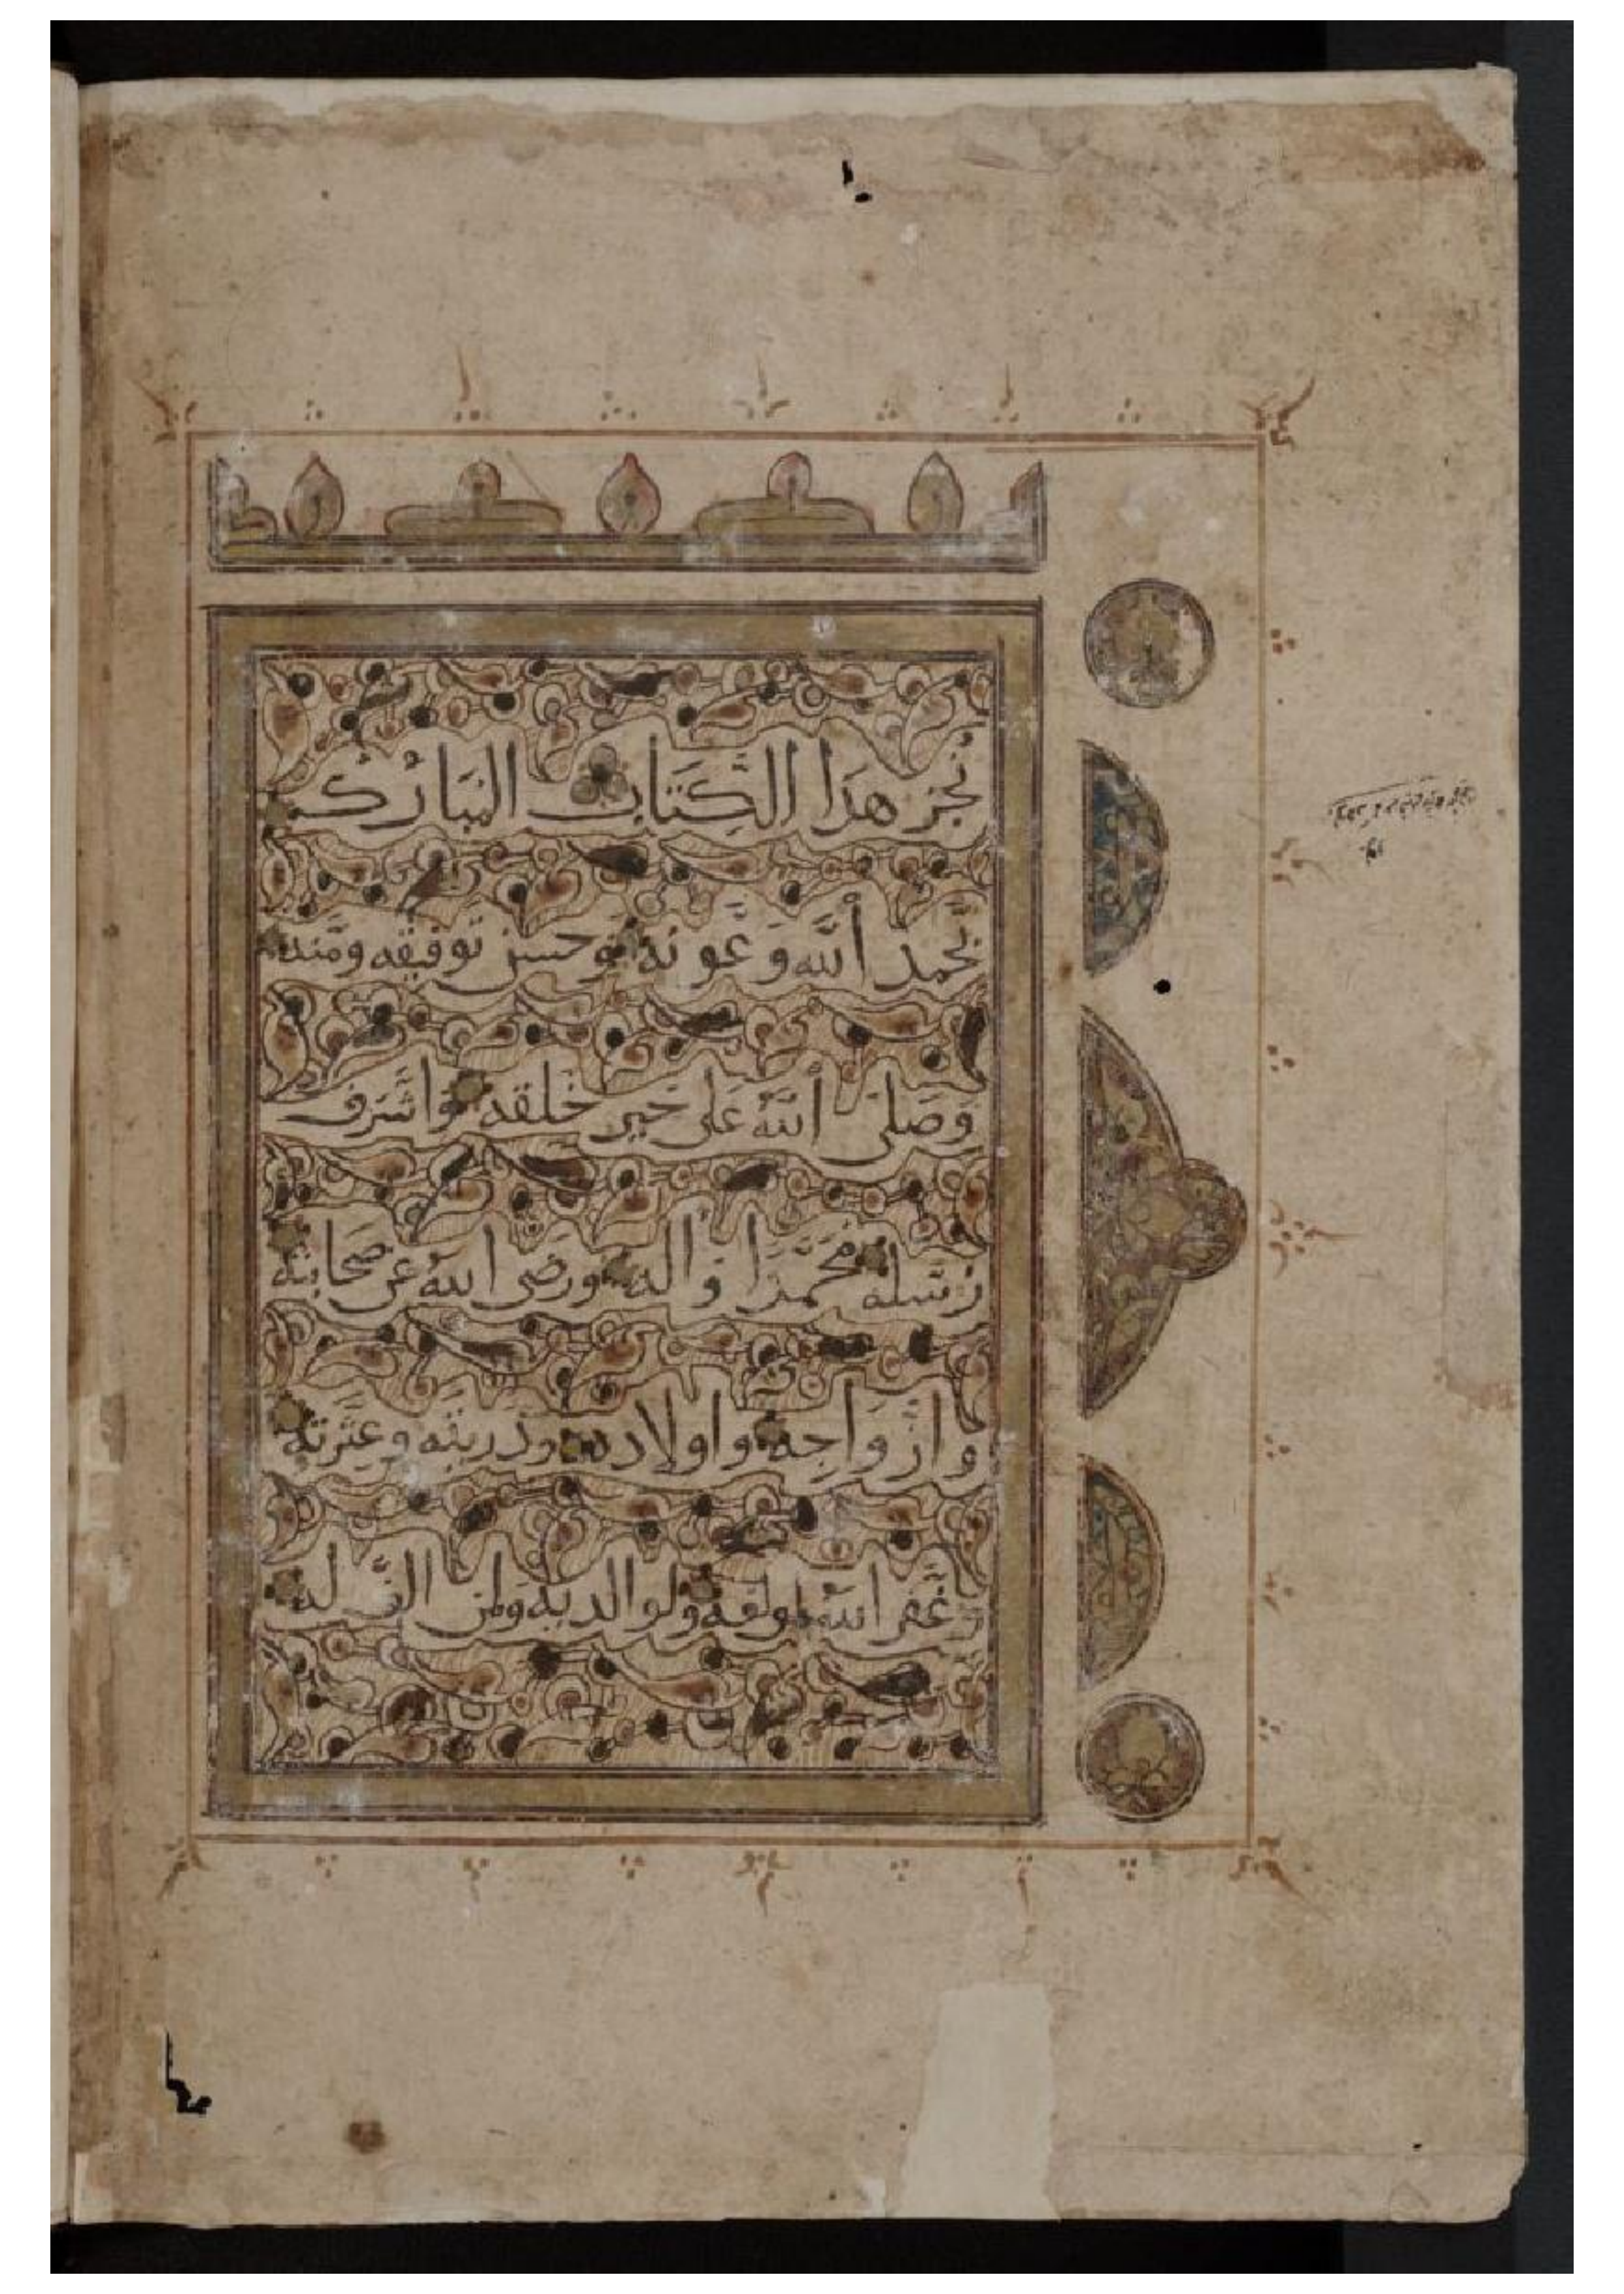 نُجِزَ هَذَا الكِتَابُ المُبَارَكُ
بِحَمدِ اللَّهِ وَعَونِهِ وحسن توفيقه ومَنِّه
وَصَلَّى اللَّهُ عَلَى خَيرِ خَلقِهِ وَاشرَفِ
رُسُلِهِ مُحَمَّدٍ وَالِهِ ورَضِىَ اللَّهُ عَن صَحَابَتِهِ
وازوَاجِهِ واولادِهِ وذريته وعترته
وَغَفَرَ اللَّهُ لمولفه ولوالديه ولمن الف له